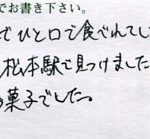 でお書き下さい。
でひと口で食べれてし
松本駅で見つけました
お菓子でした。